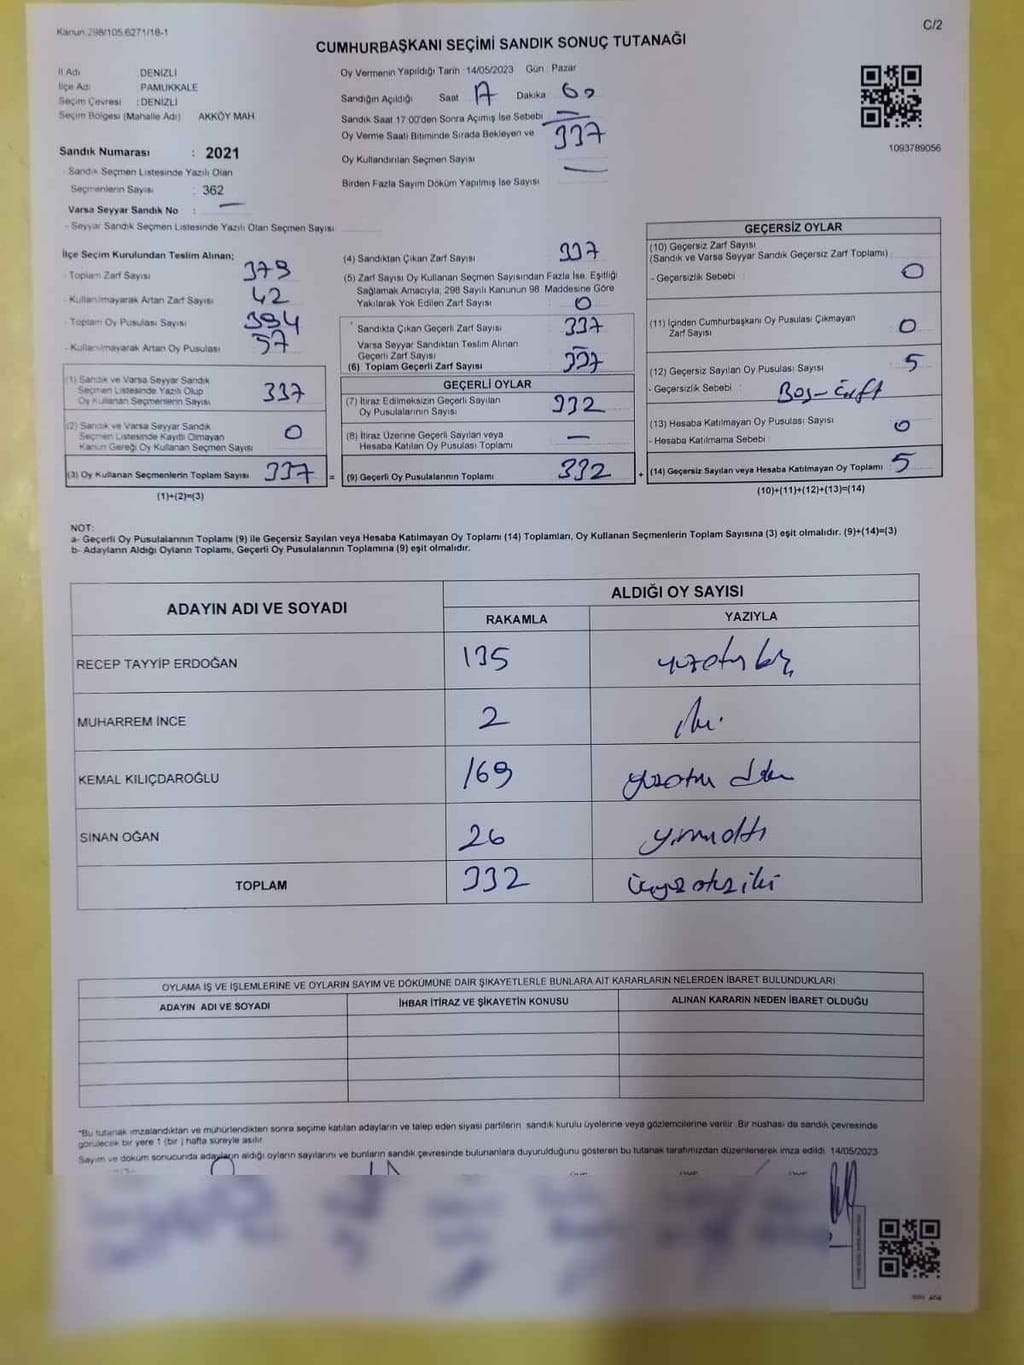 Kanun 298/105.6271/18-1
C/2
CUMHURBAŞKANI SEÇİMİ SANDIK SONUÇ TUTANAĞI
İl Adı DENİZLİ
İlçe Adı PAMUKKALE
Seçim Çevresi : DENİZLİ
Seçim Bölgesi (Mahalle Adı) AKKÖY MAH
Sandık Numarası : 2021
- Sandık Seçmen Listesinde Yazılı Olan
Seçmenlerin Sayısı : 362
Varsa Seyyar Sandık No : —
- Seyyar Sandık Seçmen Listesinde Yazılı Olan Seçmen Sayısı
Oy Vermenin Yapıldığı Tarih 14/05/2023 Gün Pazar
Sandığın Açıldığı Saat 17 Dakika
Sandık Saat 17:00'den Sonra Açımış İse Sebebi —
Oy Verme Saati Bitiminde Sırada Bekleyen ve 337
Oy Kullandırılan Seçmen Sayısı
Birden Fazla Sayım Döküm Yapılmış İse Sayısı —
1093789056
İlçe Seçim Kurulundan Teslim Alınan;
- Toplam Zarf Sayısı 379
- Kullanılmayarak Artan Zarf Sayısı 42
- Toplam Oy Pusulası Sayısı 394
- Kullanılmayarak Artan Oy Pusulası 57
(1) Sandık ve Varsa Seyyar Sandık
Seçmen Listesinde Yazılı Olup
Oy Kullanan Seçmenlerin Sayısı 337
(2) Sandık ve Varsa Seyyar Sandık
Seçmen Listesinde Kayıtlı Olmayan
Kanun Gereği Oy Kullanan Seçmen Sayısı 0
(3) Oy Kullanan Seçmenlerin Toplam Sayısı 337 =
(1)+(2)=(3)
(4) Sandıktan Çıkan Zarf Sayısı 337
(5) Zarf Sayısı Oy Kullanan Seçmen Sayısından Fazla İse, Eşitliği
Sağlamak Amacıyla, 298 Sayılı Kanunun 98. Maddesine Göre
Yakılarak Yok Edilen Zarf Sayısı 0
Sandıkta Çıkan Geçerli Zarf Sayısı 337
Varsa Seyyar Sandıktan Teslim Alınan
Geçerli Zarf Sayısı —
(6) Toplam Geçerli Zarf Sayısı 337
GEÇERLİ OYLAR
(7) İtiraz Edilmeksizin Geçerli Sayılan
Oy Pusulalarının Sayısı 332
(8) İtiraz Üzerine Geçerli Sayılan veya
Hesaba Katılan Oy Pusulaları Toplamı —
(9) Geçerli Oy Pusulalarının Toplamı 332 +
GEÇERSİZ OYLAR
(10) Geçersiz Zarf Sayısı
(Sandık ve Varsa Seyyar Sandık Geçersiz Zarf Toplamı)
- Geçersizlik Sebebi : 0
(11) İçinden Cumhurbaşkanı Oy Pusulası Çıkmayan
Zarf Sayısı 0
(12) Geçersiz Sayılan Oy Pusulası Sayısı 5
- Geçersizlik Sebebi : Boş-Çift
(13) Hesaba Katılmayan Oy Pusulası Sayısı 0
- Hesaba Katılmama Sebebi
(14) Geçersiz Sayılan veya Hesaba Katılmayan Oy Toplamı 5
(10)+(11)+(12)+(13)=(14)
NOT:
a- Geçerli Oy Pusulalarının Toplamı (9) ile Geçersiz Sayılan veya Hesaba Katılmayan Oy Toplamı (14) Toplamları, Oy Kullanan Seçmenlerin Toplam Sayısına (3) eşit olmalıdır. (9)+(14)=(3)
b- Adayların Aldığı Oyların Toplamı, Geçerli Oy Pusulalarının Toplamına (9) eşit olmalıdır.
ADAYIN ADI VE SOYADI ALDIĞI OY SAYISI
RAKAMLA YAZIYLA
RECEP TAYYİP ERDOĞAN 135 yüzotuzbeş
MUHARREM İNCE 2 iki
KEMAL KILIÇDAROĞLU 169
SİNAN OĞAN 26 yirmialtı
TOPLAM 332 üçyüzotuziki
OYLAMA İŞ VE İŞLEMLERİNE VE OYLARIN SAYIM VE DÖKÜMÜNE DAİR ŞİKAYETLERLE BUNLARA AİT KARARLARIN NELERDEN İBARET BULUNDUKLARI
ADAYIN ADI VE SOYADI İHBAR İTİRAZ VE ŞİKAYETİN KONUSU ALINAN KARARIN NEDEN İBARET OLDUĞU
*Bu tutanak imzalandıktan ve mühürlendikten sonra seçime katılan adayların ve talep eden siyasi partilerin sandık kurulu üyelerine veya gözlemcilerine verilir. Bir nüshası da sandık çevresinde
görülecek bir yere 1 (bir) hafta süreyle asılır.
Sayım ve döküm sonucunda adayların aldığı oyların sayılarını ve bunların sandık çevresinde bulunanlara duyurulduğunu gösteren bu tutanak tarafımızdan düzenlenerek imza edildi. 14/05/2023